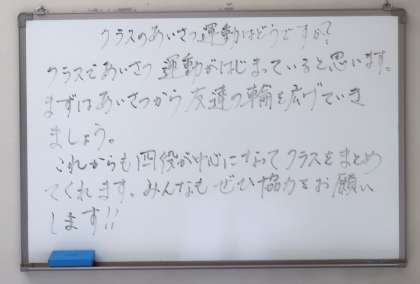 クラスのあいさつ運動はどうですか?
クラスであいさつ運動がはじまっていると思います。
まずはあいさつから友達の輪を広げていき
ましょう。
これからも四役が中心になってクラスをまとめ
てくれます。みんなもぜひ協力をお願い
します!!